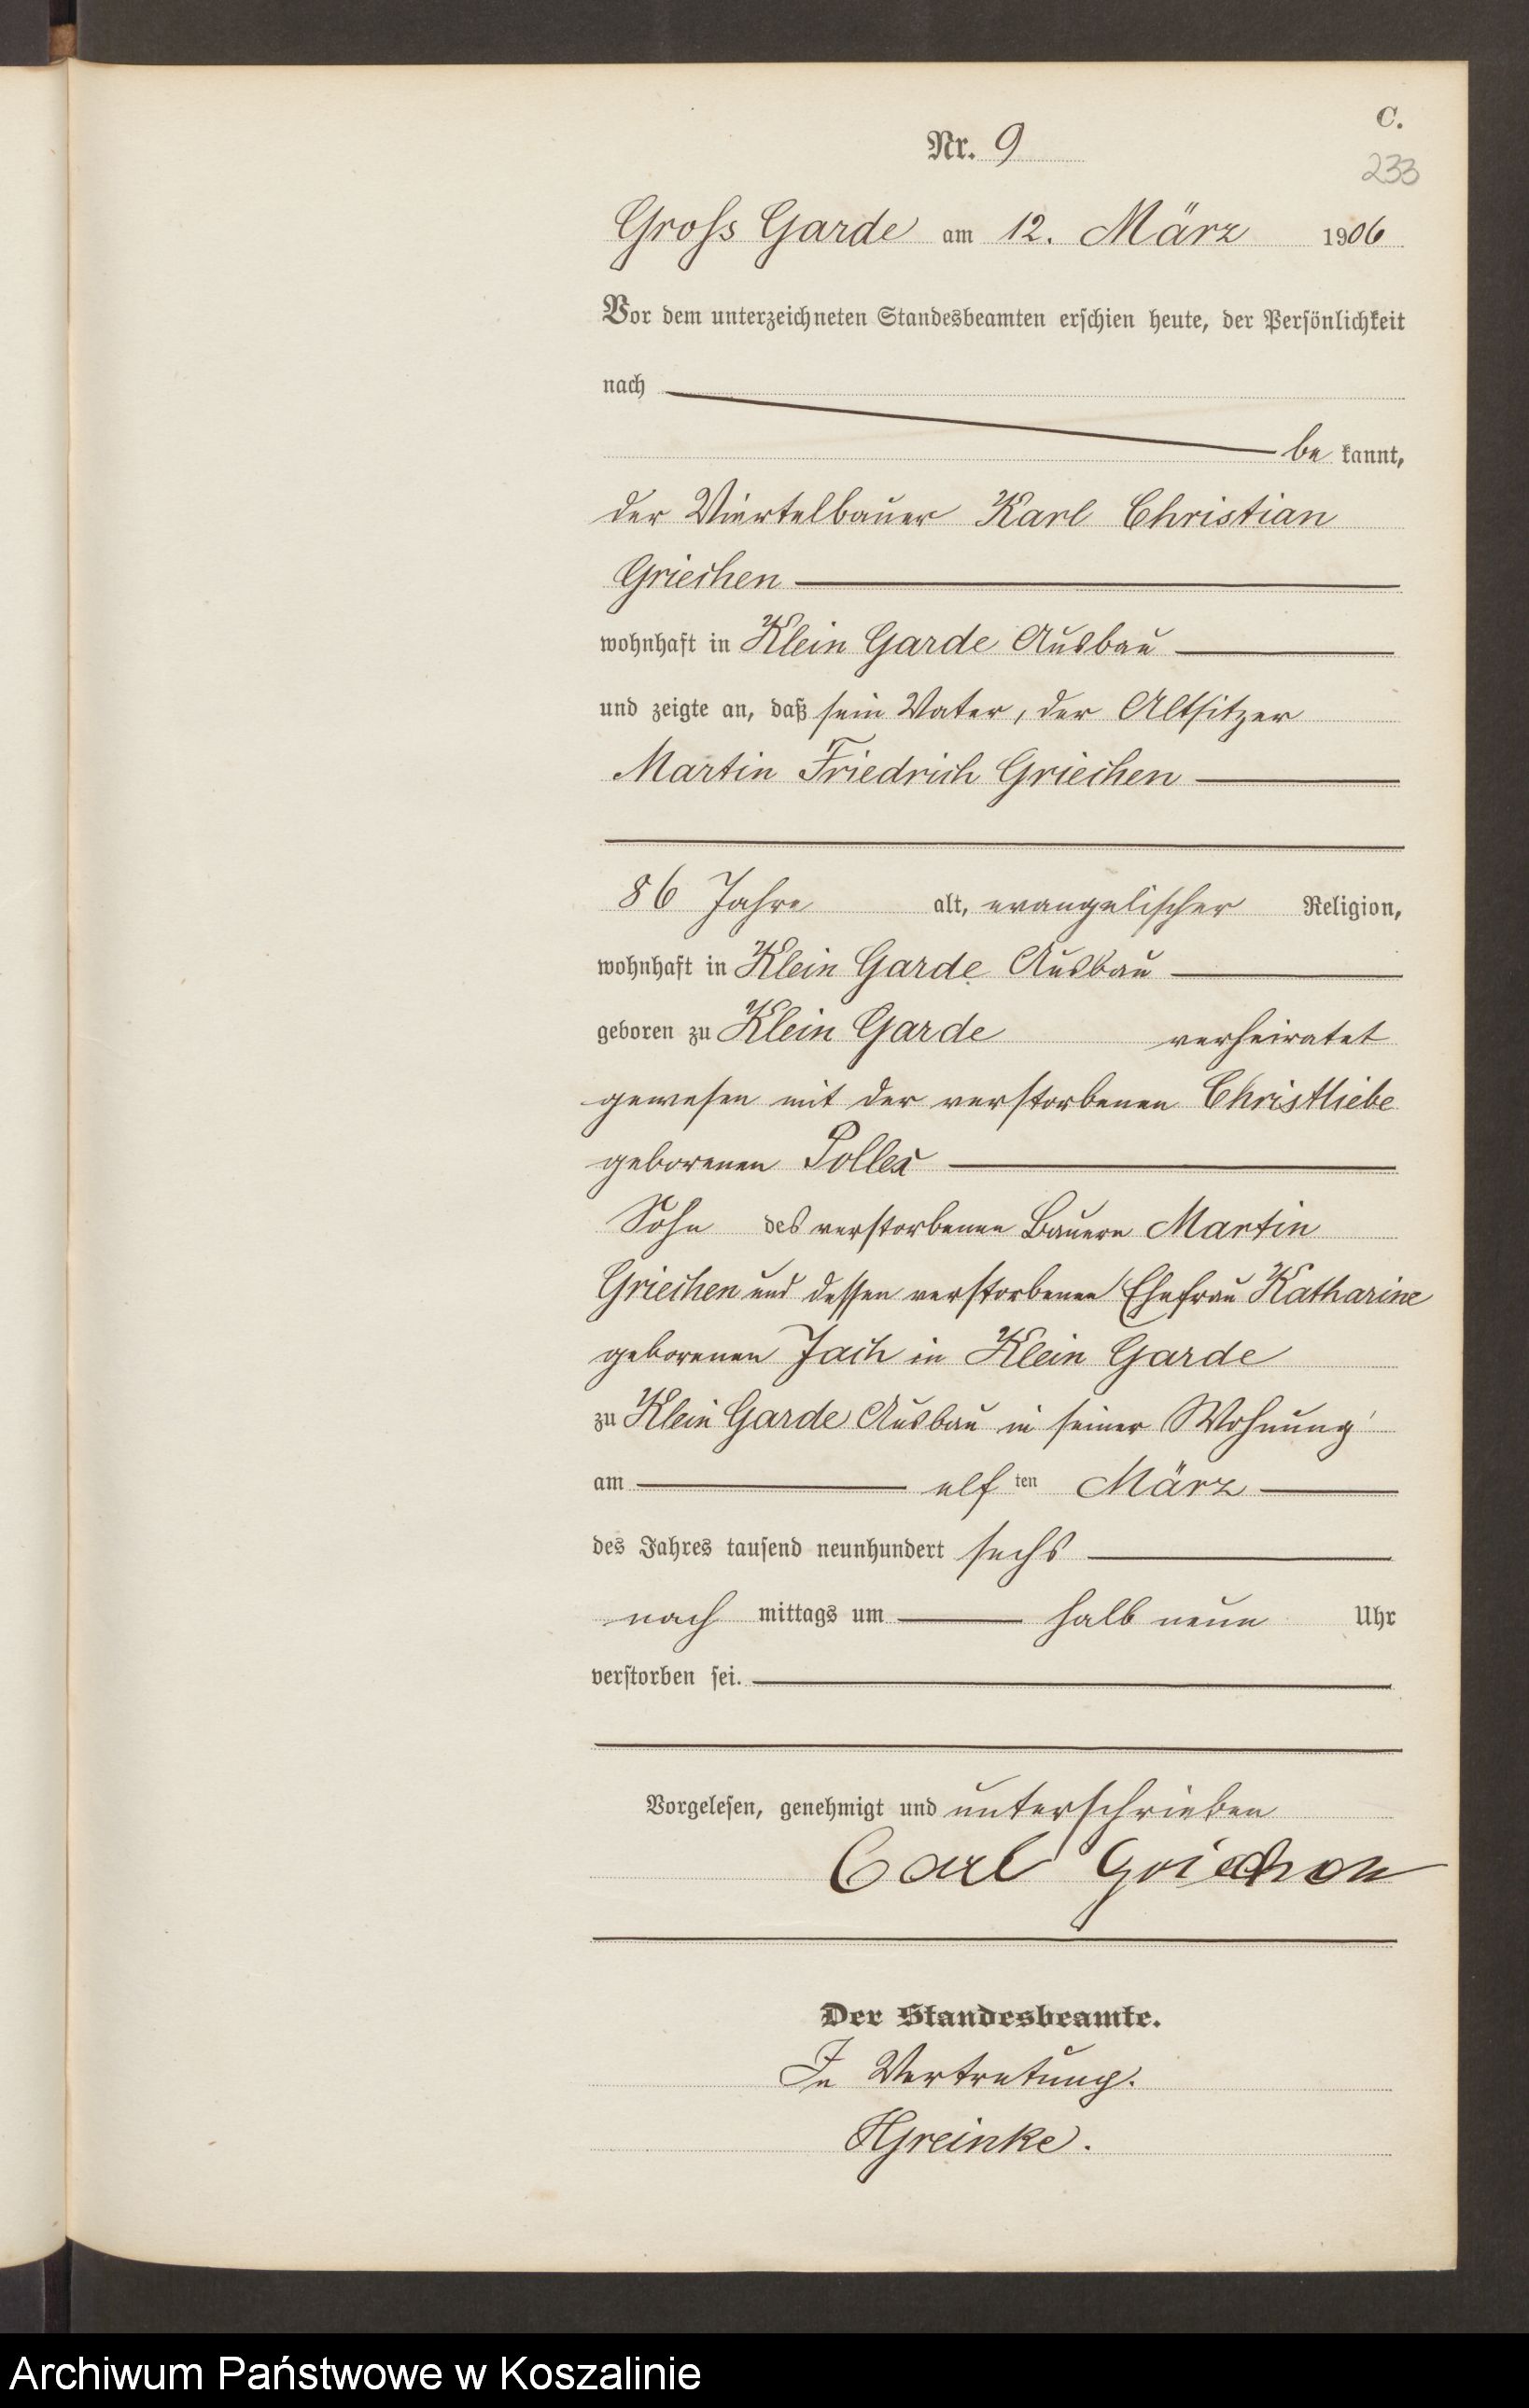 C.
Nr. 9
233
Gross Garde am 12. März 1906
Vor dem unterzeichneten Standesbeamten erschien heute, der Persönlichkeit
nach
be kannt,
der Viertelbauer Karl Christian
Griechen
wohnhaft in Klein Garde Ausbau
und zeigte an, daß sein Vater, der Altsitzer
Martin Friedrich Griechen
86 Jahre alt, evangelischer Religion,
wohnhaft in Klein Garde Ausbau
geboren zu Klein Garde verheiratet
gewesen mit der verstorbenen Christliebe
geborenen
Sohn des verstorbenen Bauern Martin
Griechen und dessen verstorbenen Ehefrau Katharine
geborenen Jach in Klein Garde
zu Klein Garde Ausbau in seiner Wohnung
am elf ten März
des Jahres tausend neunhundert sechs
nach mittags um halb neun Uhr
verstorben sei.
Vorgelesen, genehmigt und unterschrieben
Carl Griechen
Der Standesbeamte.
In Vertretung.
HGreinke.
Archiwum Państwowe w Koszalinie